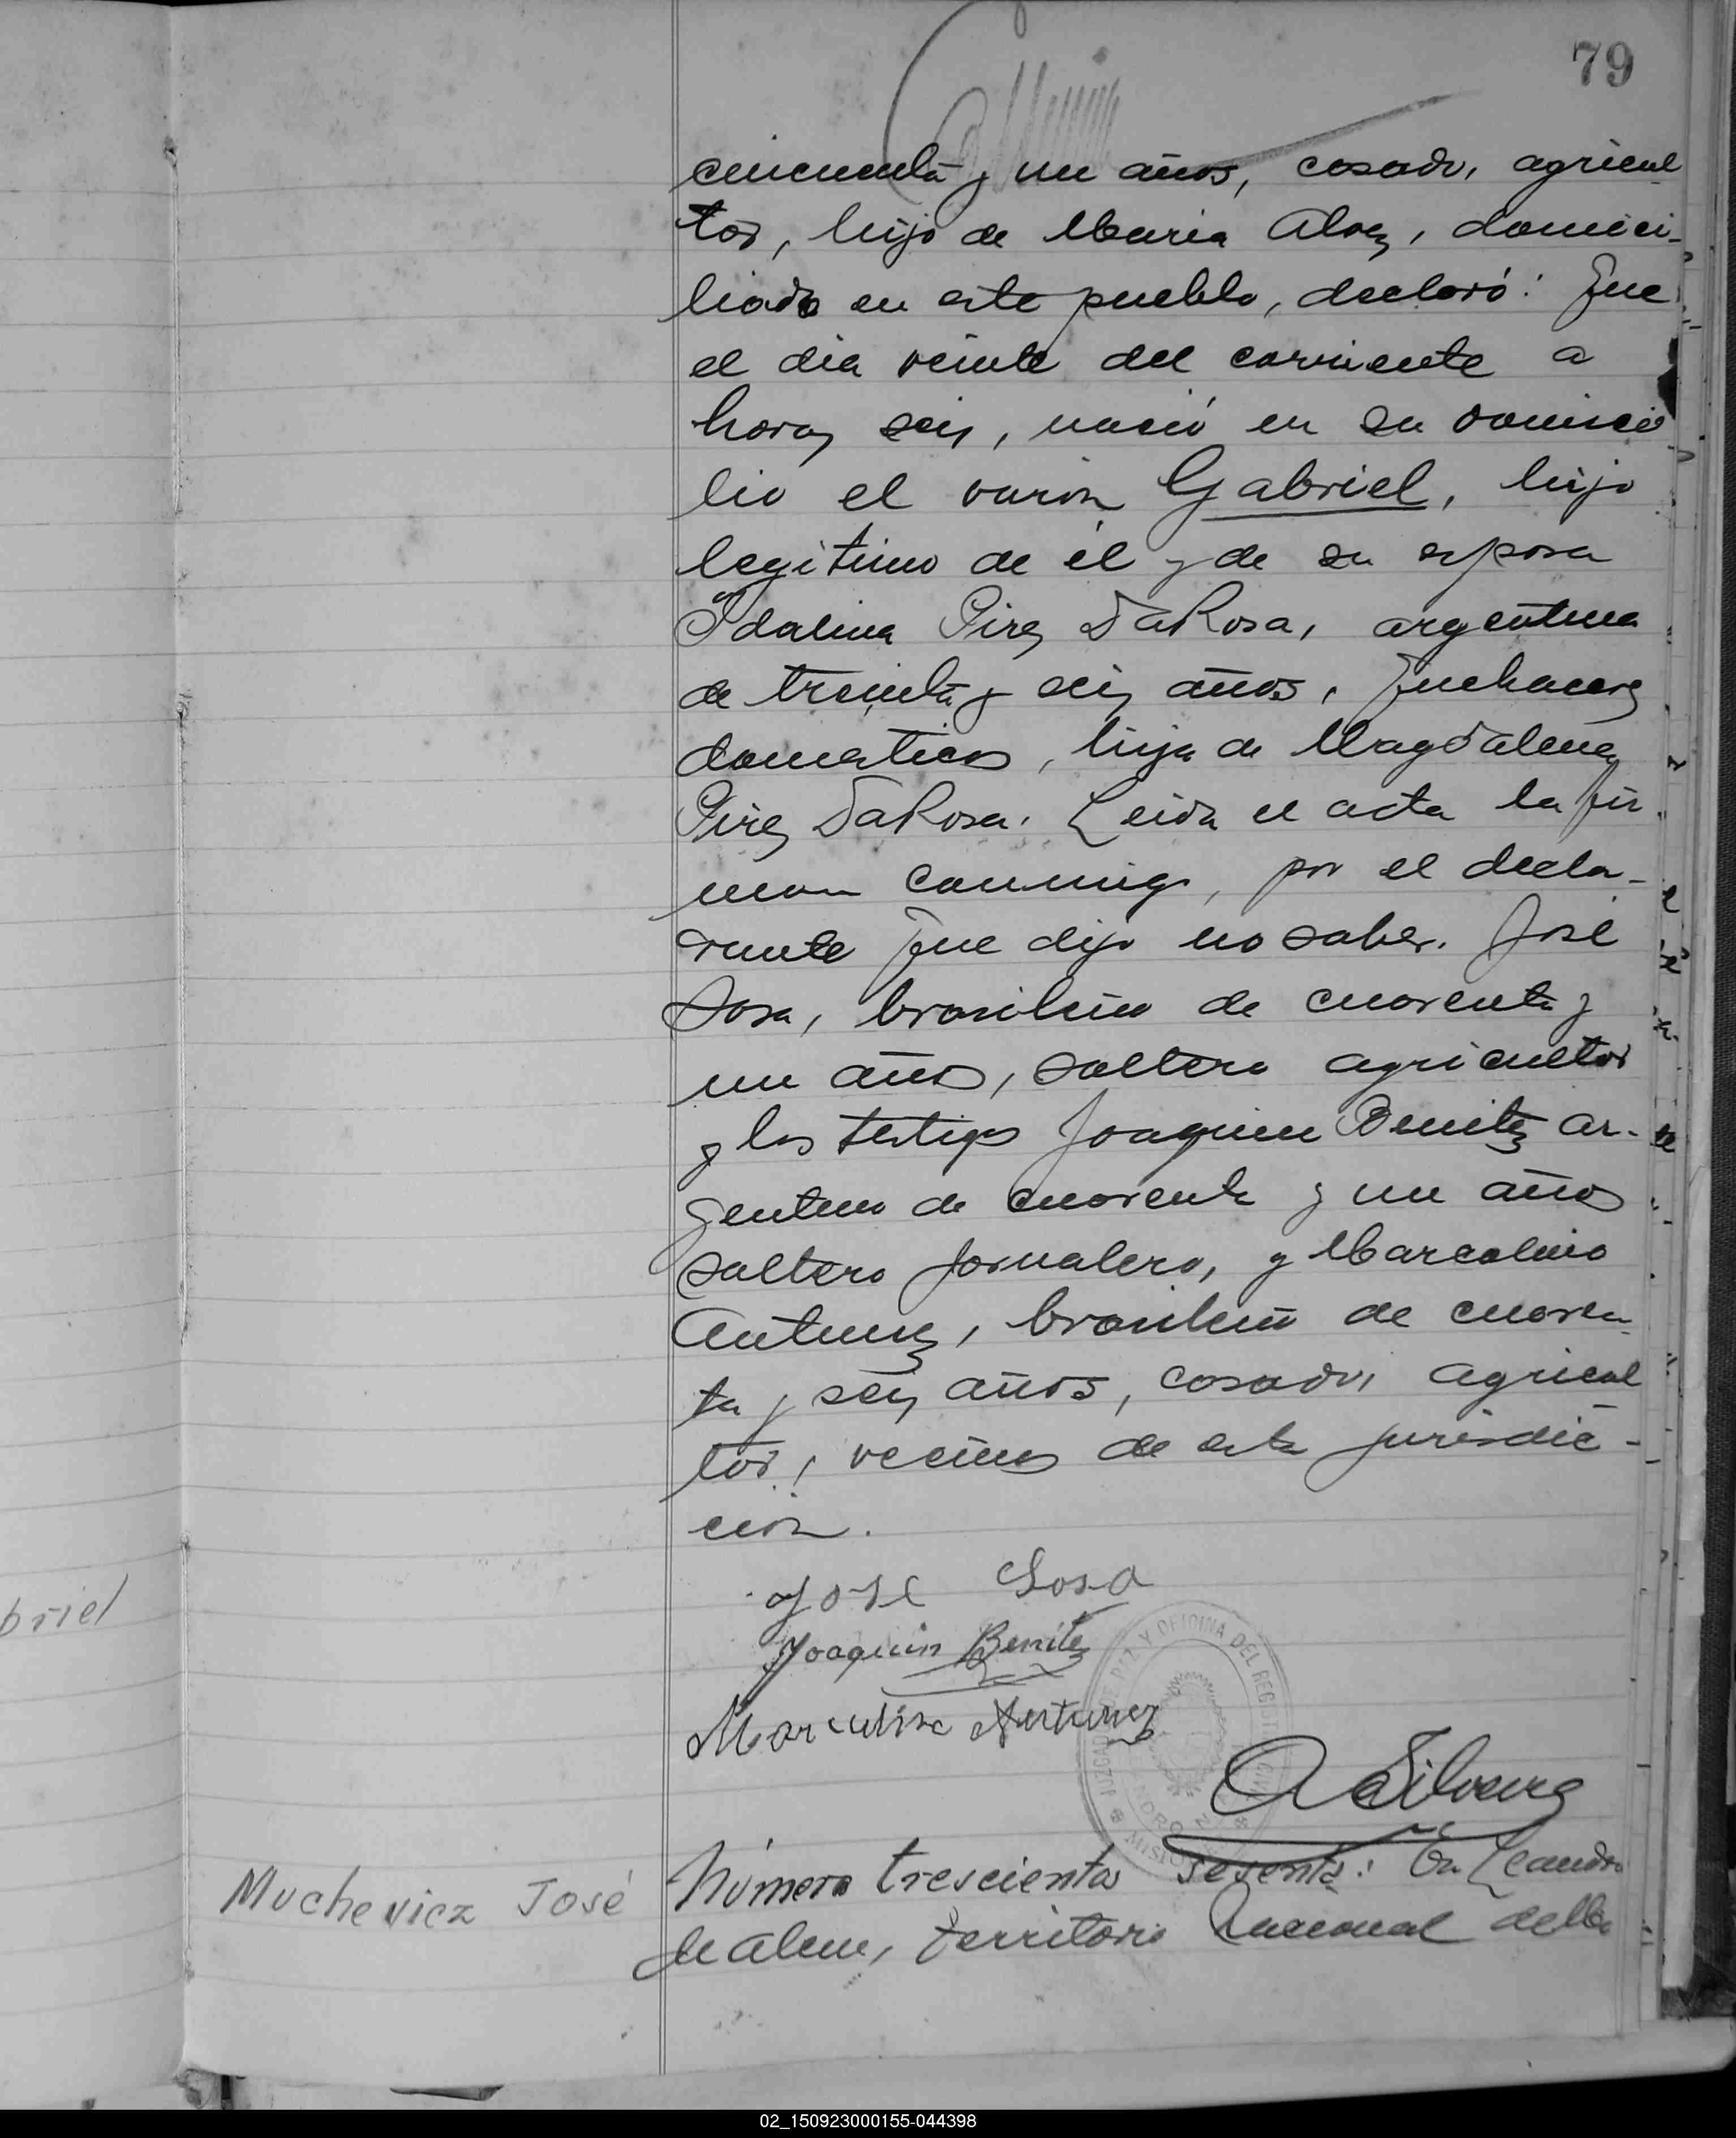 79
cincuenta y un años, casado, agricul
tor, hijo de Maria Alvez, domici-
liado en este pueblo, declaró: Que
el dia veinte del corriente a
horas seis, nació en su domici
lio el varón Gabriel, hijo
legitimo de él y de su esposa
Idalina Pires DaRosa, argentina
de treinta y seis años, quehaceres
domesticos, hija de Magdalena
Pires DaRosa. Leida el acta la fir
man conmigo, por el decla-
rante que dijo no saber. José
Sosa, brasileño de cuarenta y
un años, soltero agricultor
y los testigos Joaquin Benitez ar-
gentino de cuarenta y un años
soltero jornalero, y Marcolino
Antunez, brasileño de cuaren
ta y seis años, casado, agricul
tor, vecinos de esta jurisdic-
ción.
José Sosa
Joaquin Benitez
Antunez
JUZGADO DE PAZ Y OFICINA DEL REGISTRO CIVIL
MISIONES
briel
Muchevicz José
Número trescientos sesenta: En Leandro
de Alem, territorio Nacional de Mi
02_150923000155-044398